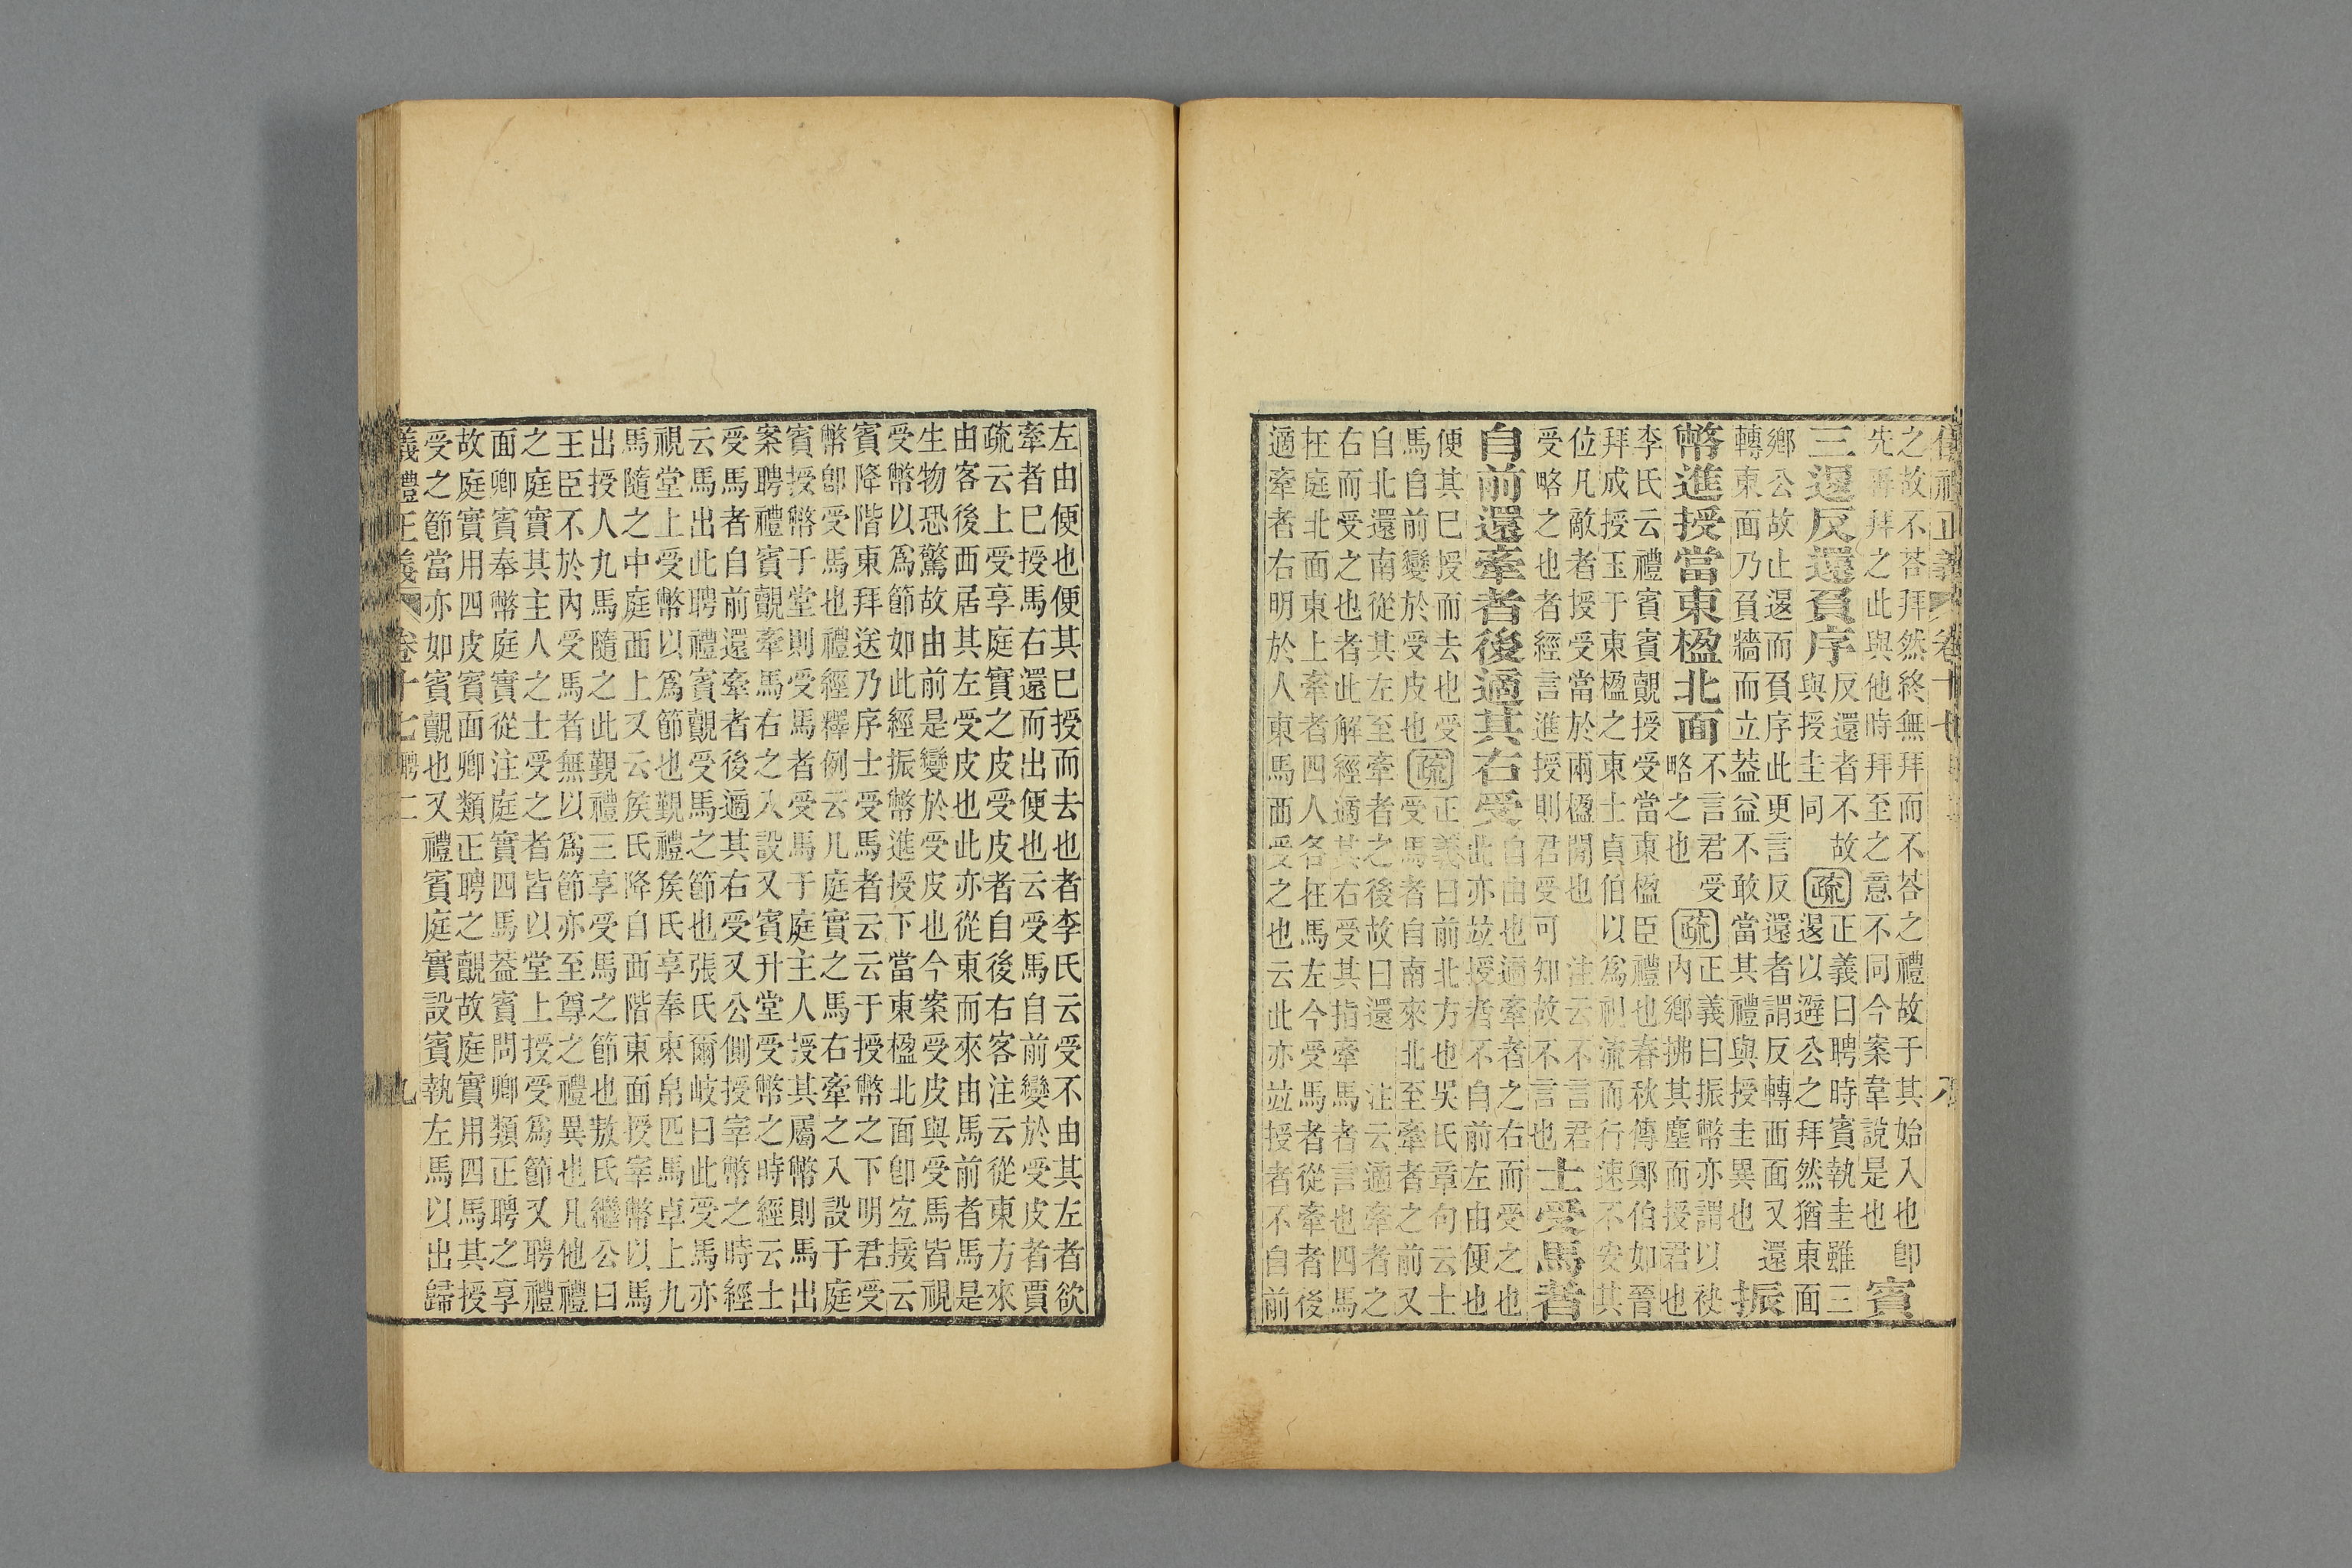 儀禮正義 卷十七 八
之故不荅拜然終無拜而不荅之禮故于其始入也 卽
先再拜之此與他時拜至之意不同今案韋說是也
賓
三退反還負序
反還者不敢
與授圭同
疏
正義曰聘時賓執圭雖三
退以避公之拜然猶東面
鄉公故止退而負序此更言反還者謂反轉面面又還
轉東面乃負牆而立葢益不敢當其禮與授圭異也
振
幣進授當東楹北面
不言君受
略之也
疏
正義曰振幣亦謂以袂
內鄉拂其塵而授君也
李氏云禮賓賓覿授受當東楹臣禮也春秋傳鄭伯如晉
拜成授玉于東楹之東士貞伯以爲視流而行速不安其
位凡敵者授受當於兩楹閒也 注云不言君
受略之也者經言進授則君受可知故不言也
士受馬者
自前還牽者後適其右受
自由也適牽者之右而受之也
此亦竝授者不自前左由便也
便其已授而去也受
馬自前變於受皮也
疏
正義曰前北方也吳氏章句云士
受馬者自南來北至牽者之前又
自北還南從其左至牽者之後故曰還 注云適牽者之
右而受之也者此解經適其右受其指牽馬者言也四馬
在庭北面東上牽者四人各在馬左今受馬者從牽者後
適牽者右明於人東馬西受之也云此亦竝授者不自前
左由便也便其已授而去也者李氏云受不由其左者欲
牽者已授馬右還而出便也云受馬自前變於受皮者賈
疏云上受享庭實之皮受皮者自後右客注云從東方來
由客後西居其左受皮也此亦從東而來由馬前者馬是
生物恐驚故由前是變於受皮也今案受皮與受馬皆視
受幣以爲節如此經振幣進授下當東楹北面卽宜接云
賓降階東拜送乃序士受馬者云云于授幣之下明君受
幣卽受馬也禮經釋例云凡庭實之馬右牽之入設于庭
賓授幣于堂則受馬者受馬于庭主人授其屬幣則馬出
案聘禮賓覿牽馬右之入設又賓升堂受幣之時經云士
受馬者自前還牽者後適其右受又公側授宰幣之時經
云馬出此聘禮賓覿受馬之節也張氏爾岐曰此受馬亦
視堂上受幣以爲節也覲禮矦氏享奉束帛匹馬卓上九
馬隨之中庭西上又云矦氏降自西階東面授宰幣以馬
出授人九馬隨之此覲禮三享受馬之節也敖氏繼公曰
王臣不於內受馬者無以爲節亦至尊之禮異也凡他禮
之庭實其主人之士受之者皆以堂上授受爲節又聘禮
面卿賓奉幣庭實從注庭實四馬葢賓問卿類正聘之享
故庭實用四皮賓面卿類正聘之覿故庭實用四馬其授
受之節當亦如賓覿也又禮賓庭實設賓執左馬以出歸
義禮正義 卷十七 聘二 九